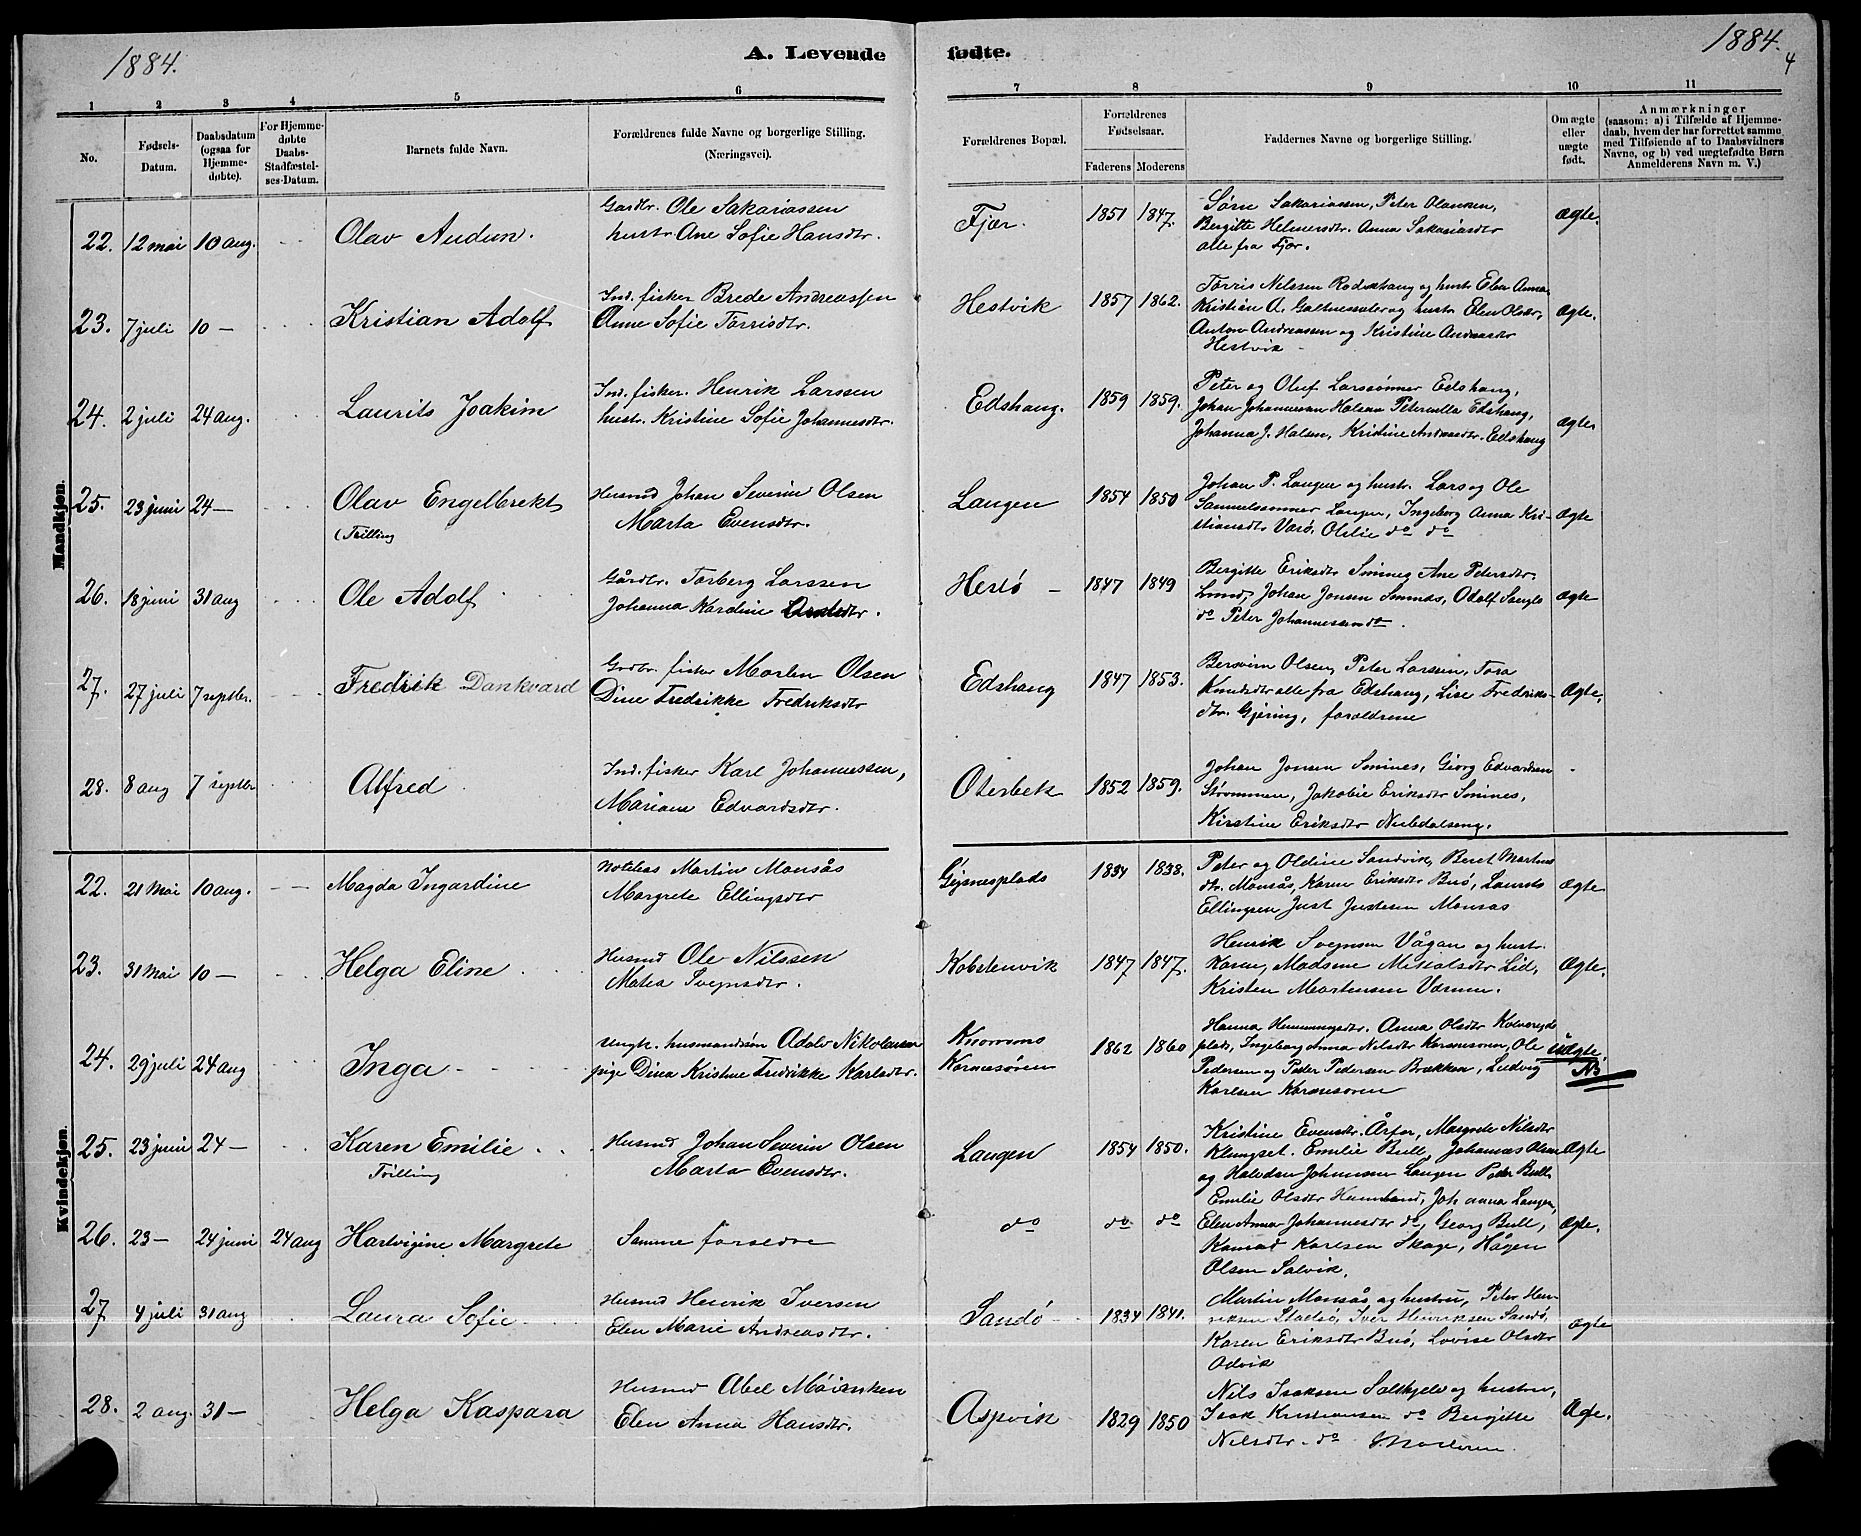 1884.
A. Levende
fødte.
1884.
4
1 2 3 4 5 6 7 8 9 10 11
No.
Fødsels-
Datum.
Daabsdatum
(ogsaa for
Hjemme-
døbte).
For Hjemme-
døbte
Daabs-
Stadfæstel-
ses-Datum.
Barnets fulde Navn.
Forældrenes fulde Navne og borgerlige Stilling.
(Næringsvei).
Forældrenes Bopæl.
Forældrenes
Fødselsaar.
Faderens Moderens
Faddernes Navne og borgerlige Stilling.
Om ægte
eller
uægte
født.
Anmærkninger
(saasom: a) i Tilfælde af Hjemme-
daab, hvem der har forrettet samme
med Tilføiende af to Daabsvidners
Navne, og b) ved uægtefødte Børn
Anmelderens Navn m. V.)
Mandkjøn.
22. 12 mai 10 aug. Olav Audun.
Gardbr. Ole Sakariassen
hustr Ane Sofie Hansdtr.
Fjær. 1851 1847.
Søren Sakariassen, Peter Olausen,
Bergitte Helmersdtr. Anna Sakariasdtr
alle fra Fjær.
Ægte.
23. 7 juli 10 — Kristian Adolf
Ind. fisker Brede Andreassen
Anne Sofie Torrisdtr.
Hestvik 1857 1862.
Torris Nilssen Rodshaug og hust. Elen Anna
Kristian A. Galtnessaler og hustr Elen Olsdtr,
Anton Andreassen og Kristine Andreasdtr
Hestvik
Ægte.
24. 2 juli 24 aug. Laurits Joakim
Ind. fisker. Henrik Larssen
hustr. Kristine Sofie Johannesdtr.
Edshaug. 1859 1859.
Peter og Oluf Larssønner Edshaug,
Johan Johannessen Halsen Peternilla Edshaug,
Johanna J. Halsen, Kristine Andreasdtr. Edshaug
Ægte
25. 23 juni 24 — Olav Engelbrekt
(Trilling
Husmd Johan Severin Olsen
Marta Evensdtr.
Langen 1854 1850
Johan P. Langen og hustr. Lars og Ole
Samuelssønner Langen, Ingeborg Anna Kri-
stiansdtr Varø, Olelie do do
Ægte
26. 18 juni 31 aug Ole Adolf
Gårdbr. Torberg Larssen
Johanna Kardine
Hestø 1847 1849
Bergitte Eriksdtr Sminnes Ane Petersdtr.
Lund, Johan Jonsen Sminnes, Odolf
do Peter Johannessen do.
Ægte
27. 27 juli 7 septbr. Fredrik Dankvard
Grdbr. fisker Morten Olsen
Dine Fredrikke Fredriksdtr
Edshaug 1847 1853.
Bersvein Olsen, Peter Larssen, Tora
Knudsdtr alle fra Edshaug, Lise Fredriks-
dtr. Gjering, forældrene
Ægte.
28. 8 aug 7 septbr Alfred
Ind. fisker Karl Johannessen,
Mariane Edvardsdtr.
Oterbek 1852 1859.
Johan Jonsen Sminnes, Georg Edvardsen
Strømmen, Jakobie Eriksdtr Sminnes,
Kirstine Eriksdtr
Kvindekjøn.
22. 21 Mai 10 aug. Magda Ingardine
Notebas Martin Monsås
Margrete Ellingsdtr
Gejsnesplads 1834 1838.
Peter og Oldine Sandvik, Beret Martins
dtr. Monsås, Karen Eriksdtr Buø, Laurits
Ellingsen Just Justesen Monsås
Ægte
23. 31 Mai 10 — Helga Eline
Husmd Ole Nilssen
Matea Svejnsdtr.
Kobstenvik 1847 1847.
Henrik Svejnsen Vågan og hustr.
Karen, Madsene Mikalsdtr Lid,
Kristen Mortensen Værum.
Ægte.
24. 29 juli 24 aug Inga
Ungk. husmandssøn Adolv Nikolaisen
pige Dina Kristine Fredrikke Karlsdtr.
Kornesøren 1862 1860
Hanna Hemmingsdtr. Anna Olsdtr
plads, Ingeborg Anna Nilsdtr Kornesøren, Ole
Pedersen og Peder Pedersen Brækken, Ludvig
Karlsen Kornesøren
Uægte.
NB
25. 23 juni 24 — Karen Emilie
Trilling
Husmd Johan Severin Olsen
Marta Evensdtr.
Langen 1854 1850.
Kristine Evensdtr. Årfor, Margrete Nilsdtr
Klungset. Emilie Bull, Johannes Olsen
og Halvdan Johnsen Langen Peder Bull
Ægte
26. 23 — 24 juni 24 aug Hartvigine Margrete
Samme forældre
do do do
Emilie Olsdtr Hamland, Johanna Langen,
Elen Anna Johannesdtr do, Georg Bull,
Konrad Karlsen Skage, Hågen
Olsen Salvik.
Ægte.
27 4 juli 31 aug Laura Sofie
Husmd Henrik Iversen
Elen Marie Andreasdtr.
Sandø 1834 1841.
Martin Monsås og hustru, Peter Hen-
riksen Stadsø, Iver Henriksen Sandø,
Karen Eriksdtr Buø, Lovise Olsdtr
Odvik
Ægte
28. 2 aug. 31 — Helga Kaspara
Husmd Abel
Elen Anna Hansdtr.
Aspvik 1829 1850
Nils Isaksen Salskjelv og hustru,
Isak Kristiansen do Bergitte
Nilsdtr. do Moderen.
Ægte.